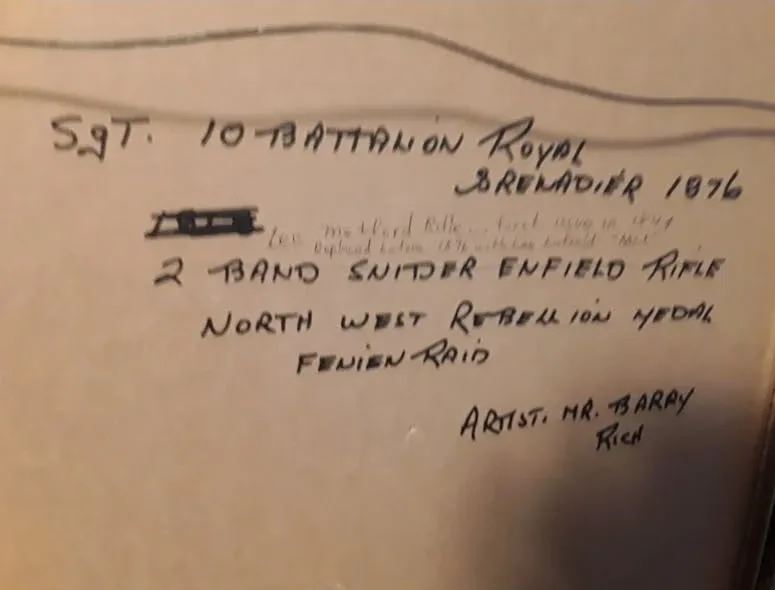 SgT. 10 BATTALION ROYAL
GRENADIER 1876
Lee Metford Rifle... first issue in
Replaced before 1896 with Lee Enfield
2 BAND SNIDER ENFIELD RIFLE
NORTH WEST REBELLION MEDAL
FENIEN RAID
ARTIST. MR. BARRY
RICH